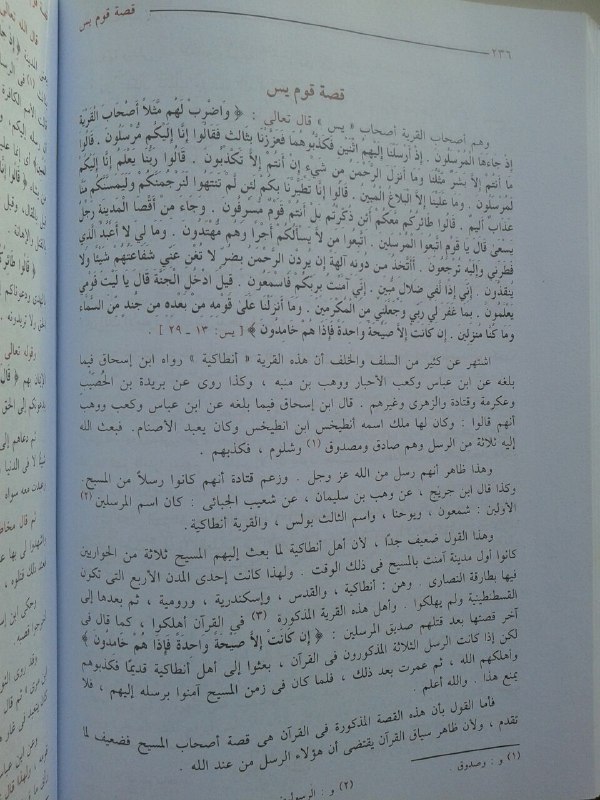 قصة قوم يس
٢٣٦
قصة قوم يس
وهم أصحاب القرية أصحاب « يس » قال تعالى : ﴿ وَاضْرِبْ لَهُم مَّثَلاً أَصْحَابَ الْقَرْيَةِ
إِذْ جَاءَهَا الْمُرْسَلُونَ . إِذْ أَرْسَلْنَا إِلَيْهِمُ اثْنَيْنِ فَكَذَّبُوهُمَا فَعَزَّزْنَا بِثَالِثٍ فَقَالُوا إِنَّا إِلَيْكُم مُّرْسَلُونَ . قَالُوا
مَا أَنتُمْ إِلاَّ بَشَرٌ مِّثْلُنَا وَمَا أَنزَلَ الرَّحْمَنُ مِن شَيْءٍ إِنْ أَنتُمْ إِلاَّ تَكْذِبُونَ . قَالُوا رَبُّنَا يَعْلَمُ إِنَّا إِلَيْكُمْ
لَمُرْسَلُونَ . وَمَا عَلَيْنَا إِلاَّ الْبَلاغُ الْمُبِينُ . قَالُوا إِنَّا تَطَيَّرْنَا بِكُمْ لَئِن لَّمْ تَنتَهُوا لَنَرْجُمَنَّكُمْ وَلَيَمَسَّنَّكُم مِّنَّا
عَذَابٌ أَلِيمٌ . قَالُوا طَائِرُكُم مَّعَكُمْ أَئِن ذُكِّرْتُم بَلْ أَنتُمْ قَوْمٌ مُّسْرِفُونَ . وَجَاءَ مِنْ أَقْصَا الْمَدِينَةِ رَجُلٌ
يَسْعَى قَالَ يَا قَوْمِ اتَّبِعُوا الْمُرْسَلِينَ . اتَّبِعُوا مَن لاَّ يَسْأَلُكُمْ أَجْرًا وَهُم مُّهْتَدُونَ . وَمَا لِي لا أَعْبُدُ الَّذِي
فَطَرَنِي وَإِلَيْهِ تُرْجَعُونَ . أَأَتَّخِذُ مِن دُونِهِ آلِهَةً إِن يُرِدْنِ الرَّحْمَن بِضُرٍّ لاَّ تُغْنِ عَنِّي شَفَاعَتُهُمْ شَيْئًا وَلا
يُنقِذُونِ . إِنِّي إِذًا لَّفِي ضَلالٍ مُّبِينٍ . إِنِّي آمَنتُ بِرَبِّكُمْ فَاسْمَعُونِ . قِيلَ ادْخُلِ الْجَنَّةَ قَالَ يَا لَيْتَ قَوْمِي
يَعْلَمُونَ . بِمَا غَفَرَ لِي رَبِّي وَجَعَلَنِي مِنَ الْمُكْرَمِينَ . وَمَا أَنزَلْنَا عَلَى قَوْمِهِ مِنْ بَعْدِهِ مِنْ جُندٍ مِّنَ السَّمَاءِ
وَمَا كُنَّا مُنزِلِينَ . إِن كَانَتْ إِلاَّ صَيْحَةً وَاحِدَةً فَإِذَا هُمْ خَامِدُونَ ﴾ [ يس: ١٣ ـ ٢٩ ] .
اشتهر عن كثير من السلف والخلف أن هذه القرية « أنطاكية » رواه ابن إسحاق فيما
بلغه عن ابن عباس وكعب الأحبار ووهب بن منبه ، وكذا روى عن بريدة بن الحُصَيْب
وعكرمة وقتادة والزهرى وغيرهم . قال ابن إسحاق فيما بلغه عن ابن عباس وكعب ووهب
أنهم قالوا : وكان لها ملك اسمه أنطيخس ابن انطيخس وكان يعبد الأصنام. فبعث الله
إليه ثلاثة من الرسل وهم صادق ومصدوق (١) وشلوم ، فكذبهم .
وهذا ظاهر أنهم رسل من الله عز وجل . وزعم قتادة أنهم كانوا رسلاً من المسيح.
وكذا قال ابن جريج ، عن وهب بن سليمان ، عن شعيب الجبائى : كان اسم المرسلين (٢)
الأولين : شمعون ، ويوحنا ، واسم الثالث بولس ، والقرية أنطاكية.
وهذا القول ضعيف جدًا ، لأن أهل أنطاكية لما بعث إليهم المسيح ثلاثة من الحواريين
كانوا أول مدينة آمنت بالمسيح فى ذلك الوقت . ولهذا كانت إحدى المدن الأربع التى تكون
فيها بطارقة النصارى . وهن : أنطاكية ، والقدس ، وإسكندرية ، ورومية ، ثم بعدها إلى
القسطنطينية ولم يهلكوا . وأهل هذه القرية المذكورة (٣) فى القرآن أهلكوا ، كما قال فى
آخر قصتها بعد قتلهم صديق المرسلين : ﴿ إِن كَانَتْ إِلاَّ صَيْحَةً وَاحِدَةً فَإِذَا هُمْ خَامِدُونَ ﴾
لكن إذا كانت الرسل الثلاثة المذكورون فى القرآن ، بعثوا إلى أهل أنطاكية قديمًا فكذبوهم
وأهلكهم الله ، ثم عمرت بعد ذلك ، فلما كان فى زمن المسيح آمنوا برسله إليهم ، فلا
يمنع هذا . والله أعلم .
فأما القول بأن هذه القصة المذكورة فى القرآن هى قصة أصحاب المسيح فضعيف لما
تقدم ، ولأن ظاهر سياق القرآن يقتضى أن هؤلاء الرسل من عند الله .
(١) و : وصدوق .
(٢) و :